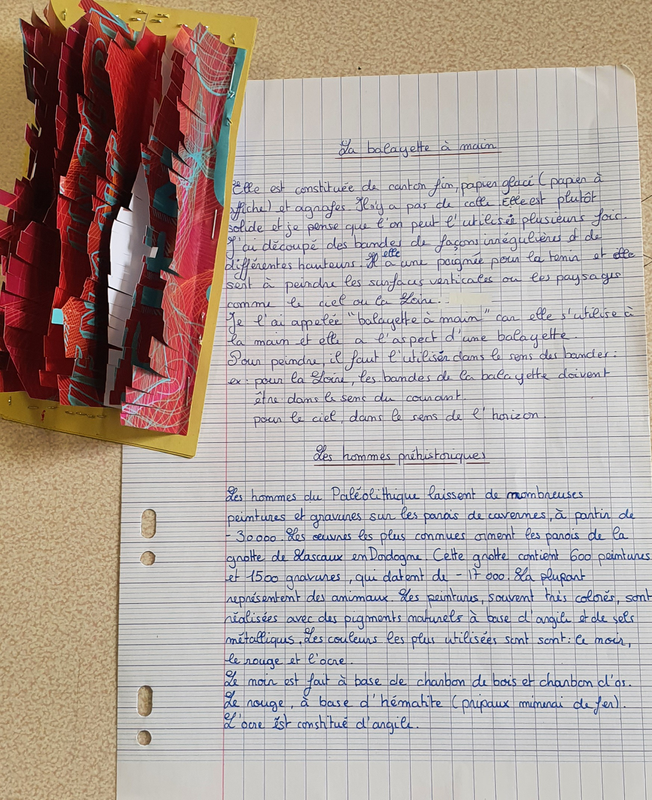 La balayette à main
Elle est constituée de carton fin, papier glacé (papier à
affiche) et agrafes. Il n'y a pas de colle. Elle est plutôt
solide et je pense que l'on peut l'utiliser plusieurs fois.
J'ai découpé des bandes de façons irrégulières et de
différentes hauteurs. elle a une poignée pour la tenir et elle
sert à peindre les surfaces verticales ou les paysages
comme le ciel ou la Loire.
Je l'ai appelée "balayette à main" car elle s'utilise à
la main et elle a l'aspect d'une balayette.
Pour peindre, il faut l'utiliser dans le sens des bandes :
ex : pour la Loire, les bandes de la balayette doivent
être dans le sens du courant.
pour le ciel, dans le sens de l'horizon.
Les hommes préhistoriques
Les hommes du Paléolithique laissent de nombreuses
peintures et gravures sur les parois de cavernes, à partir de
- 30000. Les œuvres les plus connues ornent les parois de la
grotte de Lascaux en Dordogne. Cette grotte contient 600 peintures
et 1500 gravures, qui datent de - 17 000. La plupart
représentent des animaux. Les peintures, souvent très colorés, sont
réalisées avec des pigments naturels à base d'argile et de sels
métalliques. Les couleurs les plus utilisées sont sont : le noir,
le rouge et l'ocre.
Le noir est fait à base de charbon de bois et charbon d'os.
Le rouge, à base d'hématite (pripaux minerai de fer).
L'ocre est constitué d'argile.